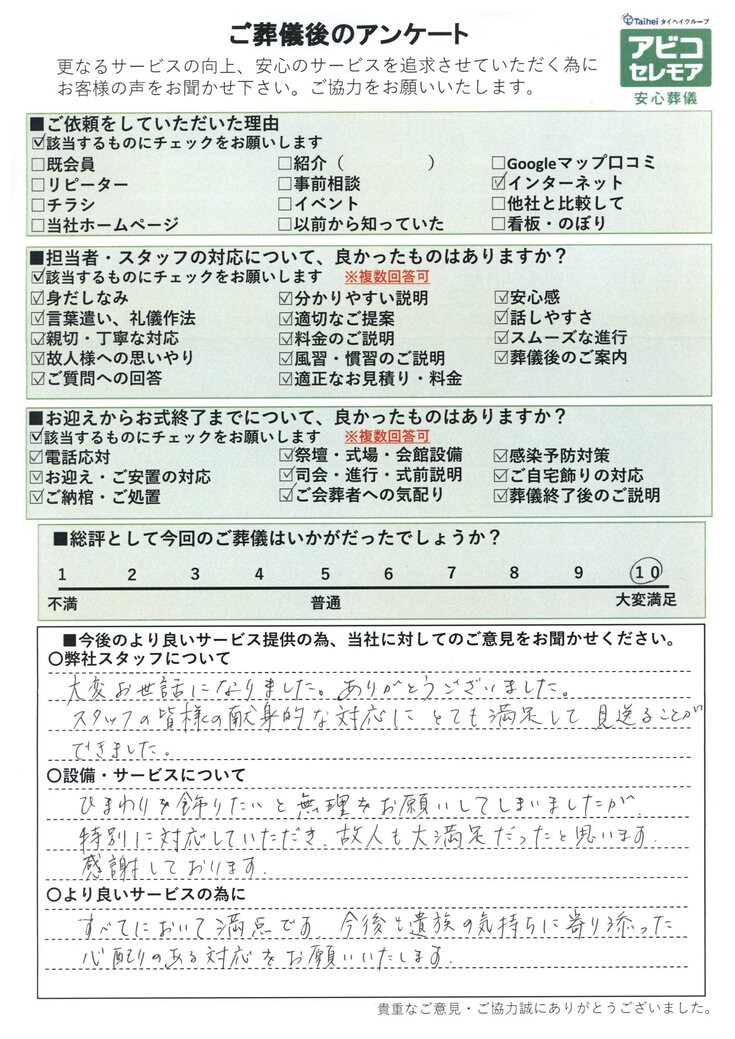 ご葬儀後のアンケート
Taihei タイヘイグループ
アビコ
セレモア
安心葬儀
更なるサービスの向上、安心のサービスを追求させていただく為に
お客様の声をお聞かせ下さい。ご協力をお願いいたします。
■ご依頼をしていただいた理由
☑該当するものにチェックをお願いします
□既会員 □紹介（ ） □Googleマップ口コミ
□リピーター □事前相談 ☑インターネット
□チラシ □イベント □他社と比較して
□当社ホームページ □以前から知っていた □看板・のぼり
■担当者・スタッフの対応について、良かったものはありますか？
☑該当するものにチェックをお願いします ※複数回答可
☑身だしなみ ☑分かりやすい説明 ☑安心感
☑言葉遣い、礼儀作法 ☑適切なご提案 ☑話しやすさ
☑親切・丁寧な対応 ☑料金のご説明 ☑スムーズな進行
☑故人様への思いやり ☑風習・慣習のご説明 ☑葬儀後のご案内
☑ご質問への回答 ☑適正なお見積り・料金
■お迎えからお式終了までについて、良かったものはありますか？
☑該当するものにチェックをお願いします ※複数回答可
☑電話応対 ☑祭壇・式場・会館設備 ☑感染予防対策
☑お迎え・ご安置の対応 ☑司会・進行・式前説明 ☑ご自宅飾りの対応
☑ご納棺・ご処置 ☑ご会葬者への気配り ☑葬儀終了後のご説明
■総評として今回のご葬儀はいかがだったでしょうか？
1 2 3 4 5 6 7 8 9 10
不満 普通 大変満足
■今後のより良いサービス提供の為、当社に対してのご意見をお聞かせください。
〇弊社スタッフについて
大変お世話になりました。ありがとうございました。
スタッフの皆様の献身的な対応に とても満足して 見送ることが
できました。
〇設備・サービスについて
ひまわりを飾りたいと無理をお願いしてしまいましたが
特別に対応していただき、故人も大満足だったと思います。
感謝しております。
〇より良いサービスの為に
すべてにおいて満点です。今後も遺族の気持ちに寄り添った
心配りのある対応をお願いいたします。
貴重なご意見・ご協力誠にありがとうございました。